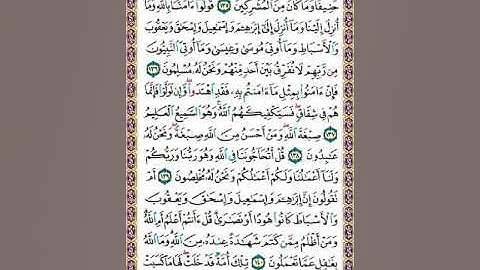 حَنِيفًا وَمَا كَانَ مِنَ الْمُشْرِكِينَ ١٣٥ قُولُوا ءَامَنَّا بِاللَّهِ وَمَا
أُنزِلَ إِلَيْنَا وَمَا أُنزِلَ إِلَى إِبْرَاهِيمَ وَإِسْمَاعِيلَ وَإِسْحَاقَ وَيَعْقُوبَ
وَالْأَسْبَاطِ وَمَا أُوتِيَ مُوسَى وَعِيسَى وَمَا أُوتِيَ النَّبِيُّونَ
مِن رَّبِّهِمْ لَا نُفَرِّقُ بَيْنَ أَحَدٍ مِّنْهُمْ وَنَحْنُ لَهُ مُسْلِمُونَ ١٣٦
فَإِنْ ءَامَنُوا بِمِثْلِ مَا ءَامَنتُم بِهِ فَقَدِ اهْتَدَوا وَّإِن تَوَلَّوْا فَإِنَّمَا
هُمْ فِي شِقَاقٍ فَسَيَكْفِيكَهُمُ اللَّهُ وَهُوَ السَّمِيعُ الْعَلِيمُ
١٣٧ صِبْغَةَ اللَّهِ وَمَنْ أَحْسَنُ مِنَ اللَّهِ صِبْغَةً وَنَحْنُ لَهُ
عَابِدُونَ ١٣٨ قُلْ أَتُحَاجُّونَنَا فِي اللَّهِ وَهُوَ رَبُّنَا وَرَبُّكُمْ
وَلَنَا أَعْمَالُنَا وَلَكُمْ أَعْمَالُكُمْ وَنَحْنُ لَهُ مُخْلِصُونَ ١٣٩ أَمْ
تَقُولُونَ إِنَّ إِبْرَاهِيمَ وَإِسْمَاعِيلَ وَإِسْحَاقَ وَيَعْقُوبَ
وَالْأَسْبَاطَ كَانُوا هُودًا أَوْ نَصَارَى قُلْ ءَأَنتُمْ أَعْلَمُ أَمِ اللَّهُ
وَمَنْ أَظْلَمُ مِمَّن كَتَمَ شَهَادَةً عِندَهُ مِنَ اللَّهِ وَمَا اللَّهُ
بِغَافِلٍ عَمَّا تَعْمَلُونَ ١٤٠ تِلْكَ أُمَّةٌ قَدْ خَلَتْ لَهَا مَا كَسَبَتْ